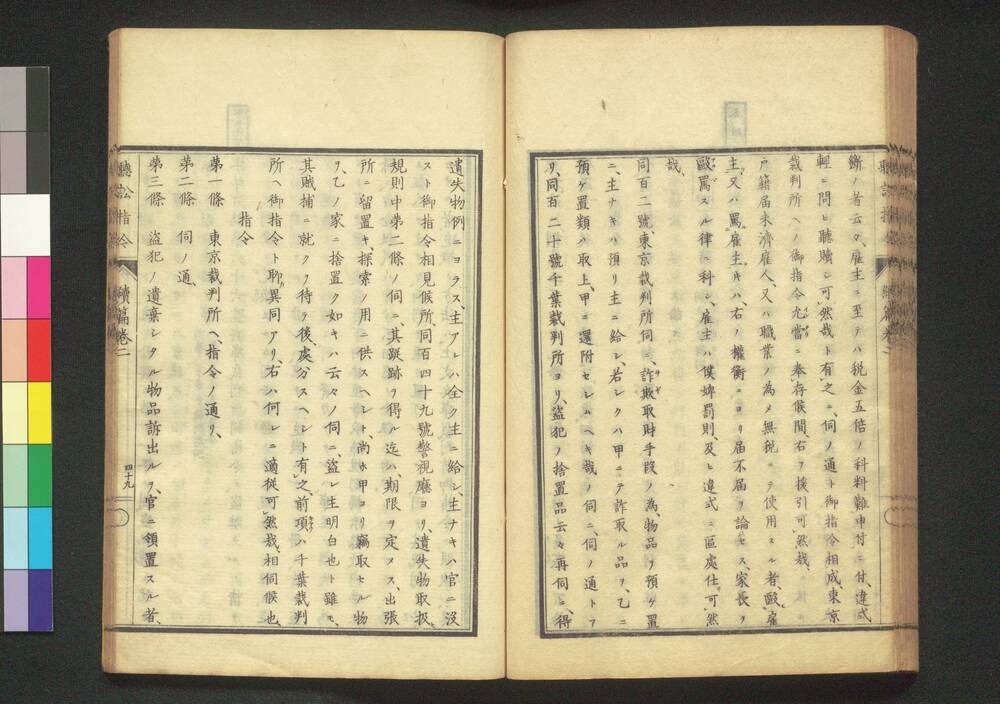 斷ノ者云々、雇主ニ至テハ税金五倍ノ科料難申付ニ付、違式
輕ニ問ヒ聽贖シ可然哉ト有之ニ、伺ノ通ト御指令相成、東京
裁判所ヘノ御指令尤當ニ奉存候間、右ヲ援引可然哉、
戸籍届未濟雇人、又ハ職業ノ為メ無税ニテ使用スル者、毆雇
主、又ハ罵雇主キハ、右ノ權衡ニヨリ届不届ヲ論セス、家長ヲ
毆罵スル律ニ科シ、雇主ハ僕婢罰則、及ヒ違式ニ區處仕可然
哉、
同百二號東京裁判所伺ニ、詐欺取財手段ノ為、物品ヲ預ケ置
ニ、主ナキハ預リ主ニ給シ、若シクハ甲ニテ詐取ル品ヲ、乙ニ
預ケ置類ハ取上、甲ニ還附セシムヘキ哉ノ伺ニ、伺ノ通トア
リ、同百二十號千葉裁判所ヨリ、盜犯ノ捨置品云々再伺ニ、得
遺失物例ニヨラス、主アレハ全ク主ニ給シ、主ナキハ官ニ没
スト御指令相見候所、同百四十九號警視廳ヨリ、遺失物取扱
規則中第二條ノ伺ニ、其蹤跡ヲ得ル迄ハ、期限ヲ定メス、出張
所ニ留置キ、探索ノ用ニ供スヘシト、尚ホ甲ヨリ竊取セル物
ヲ、乙ノ家ニ捨置ク如キハ云々ノ伺ニ、盜レ主明白也ト雖モ、
其賊捕ニ就クヲ待テ後、處分スヘシト有之、前項ハ千葉裁判
所ヘ御指令ト聊異同アリ、右ハ何レニ適從可然哉、相伺候也
指令
第一條　東京裁判所ヘ、指令ノ通リ、
第二條　伺ノ通、
第三條　盜犯ノ遺棄シタル物品訴出ルヲ、官ニ領置スル者、
聽訟指令　續篇卷二　四十九